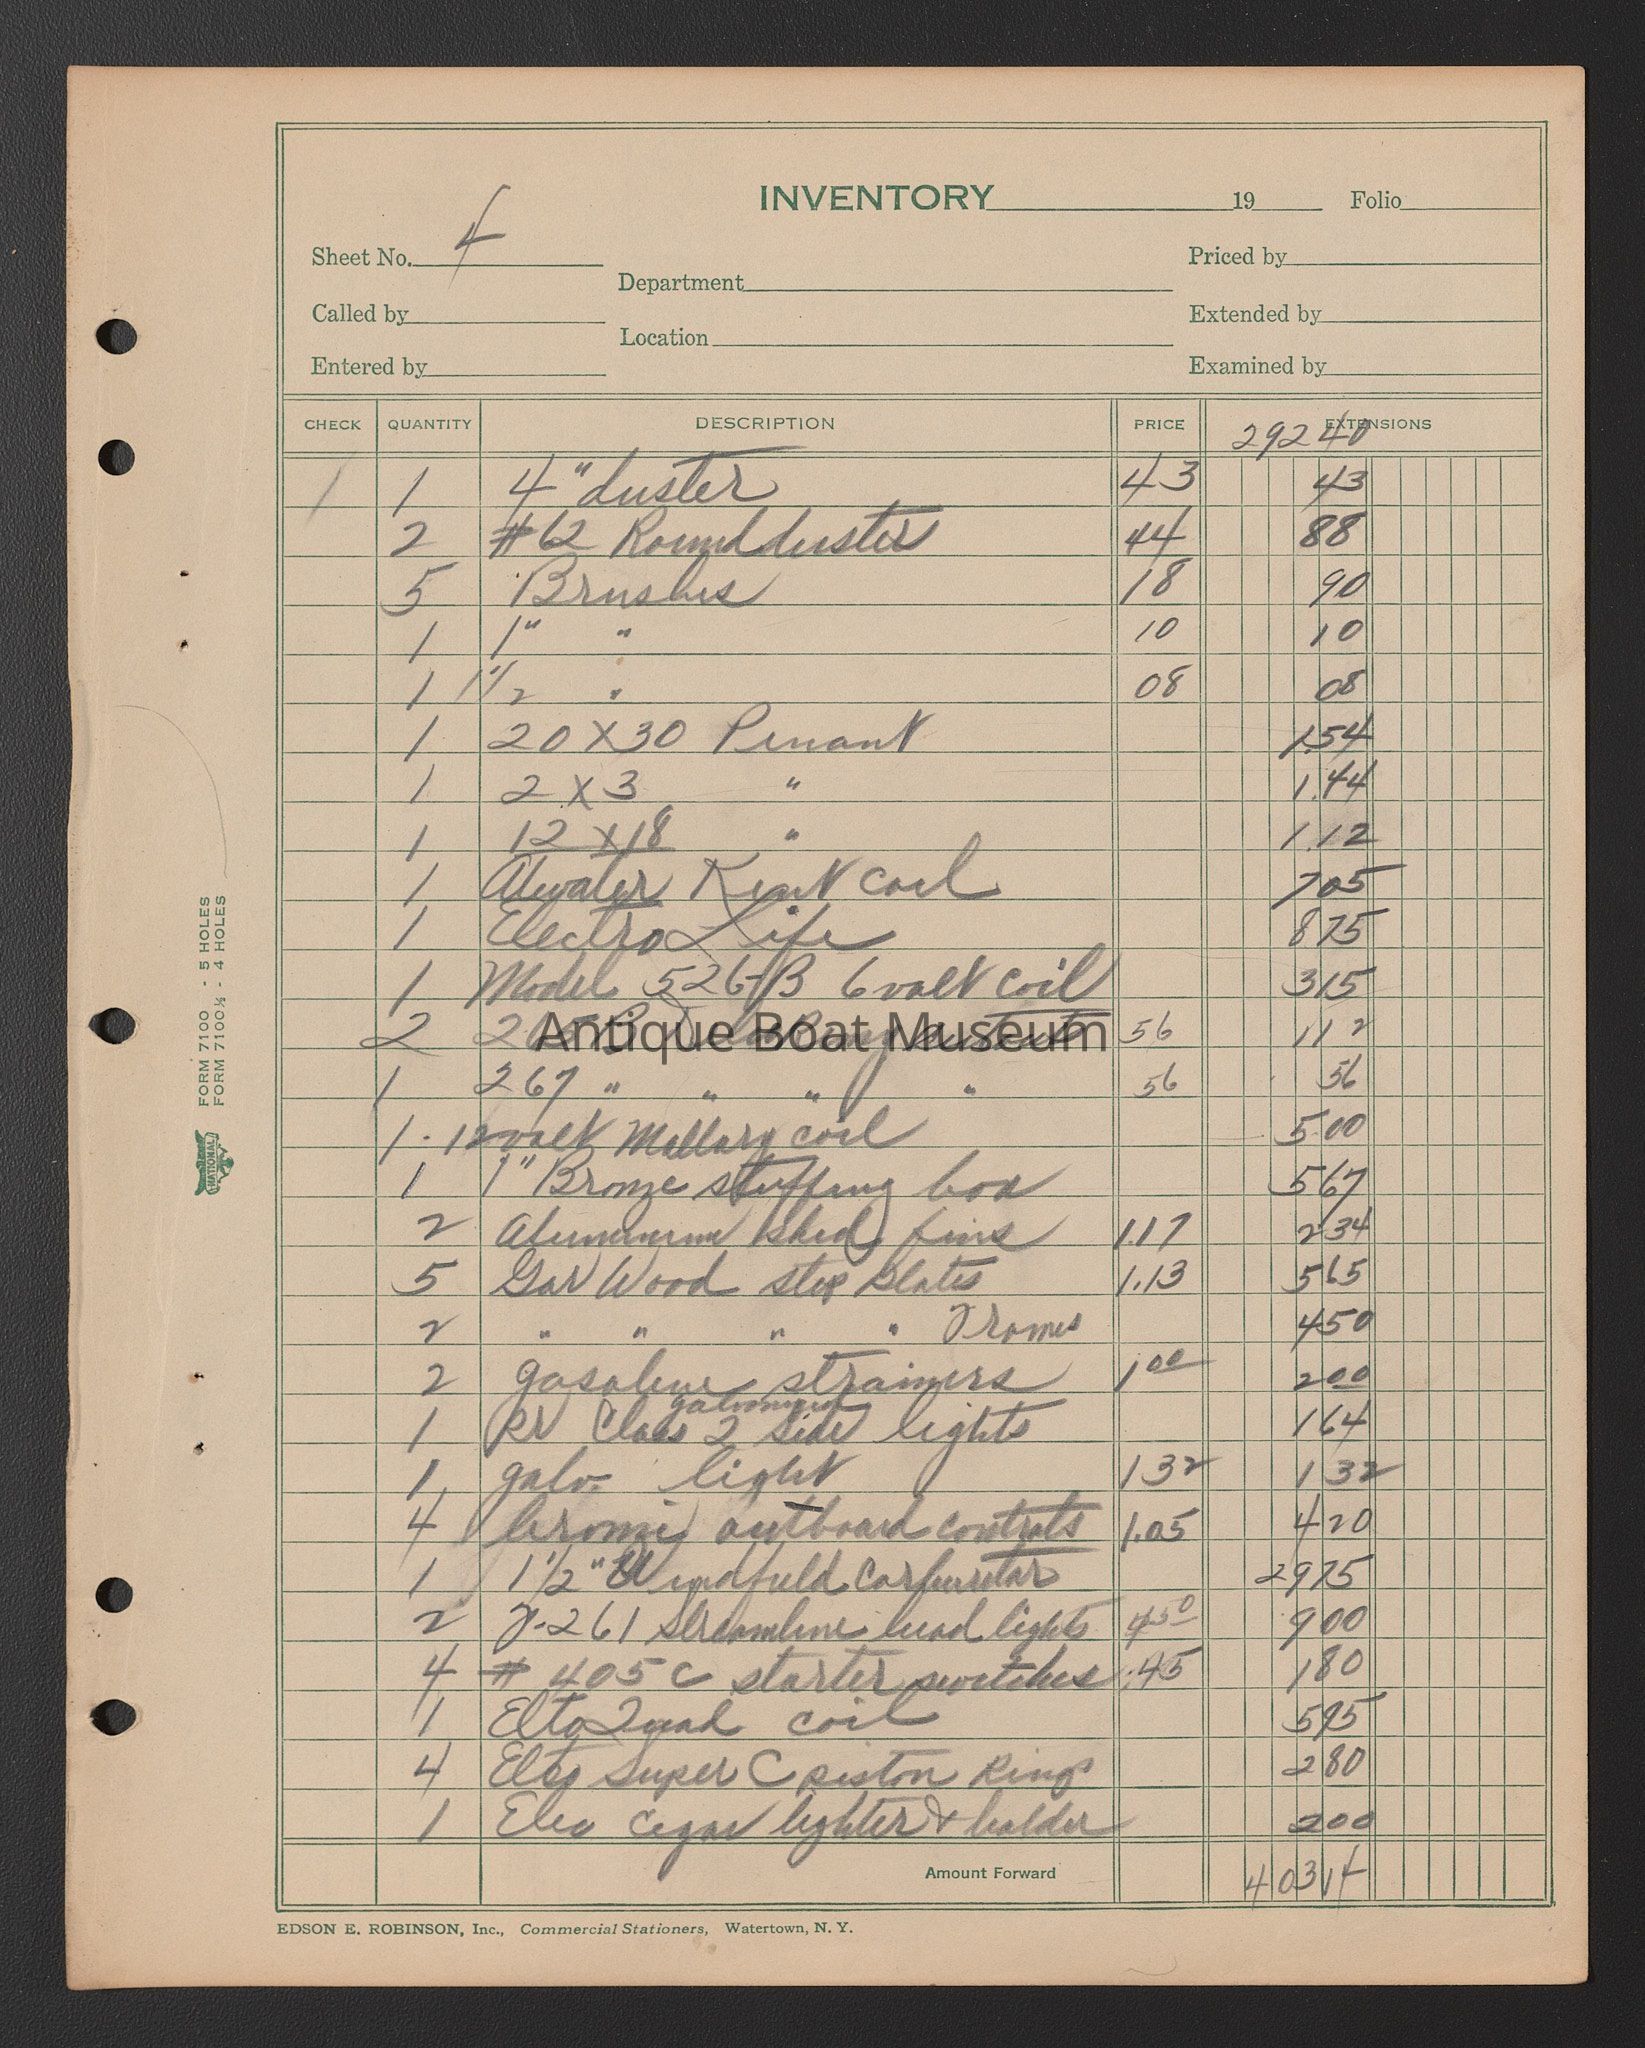 INVENTORY 19 Folio
Sheet No. 4
Priced by
Department
Called by
Extended by
Location
Entered by
Examined by
CHECK QUANTITY DESCRIPTION PRICE EXTENSIONS
29240
1 1 4" duster 43 43
2 #62 Round dusters 44 88
5 Brushes 18 90
1 1" " 10 10
1 1 1/2 " 08 08
1 20 X 30 Penant 1.54
1 2 X 3 " 1.44
1 12 X 18 " 1.12
1 Atwater Kent coil 705
1 Electro Life 875
1 Model 526-B 6 volt coil 315
2 56 112
Antique Boat Museum
1 267 " " " " 56 56
1. 12 volt Mallary coil 500
1 1" Bronze stuffing box 567
2 Aluminum skid fins 1.17 234
5 Gar Wood step plates 1.13 565
2 " " " " Frames 450
2 gasoline strainers 1 00 200
galvanized
1 Class 2 side lights 164
1 galv. light 1 32 132
4 outboard controls 1.05 420
1 1 1/2" carburetor 2975
2 streamline head lights 4 50 900
4 # 405 C starter switches .45 180
1 Elto Quad coil 595
4 Elto Super C piston Rings 280
1 cigar lighter & holder 200
Amount Forward 40314
EDSON E. ROBINSON, Inc., Commercial Stationers, Watertown, N. Y.
FORM 7100 - 5 HOLES
FORM 7100½ - 4 HOLES
NATIONAL